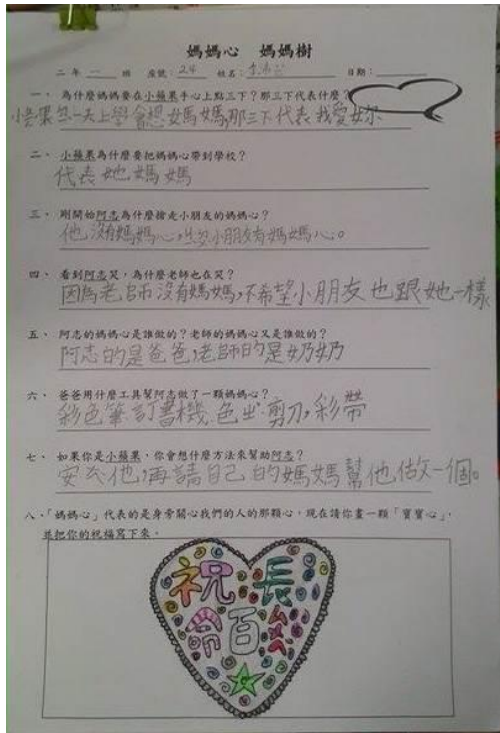 媽媽心 媽媽樹
二年 一 班 座號:24 姓名: 日期:
一、為什麼媽媽要在小蘋果手心上點三下?那三下代表什麼?
小蘋果第一天上學會想媽媽,那三下代表我愛妳
二、小蘋果為什麼要把媽媽心帶到學校?
代表她媽媽
三、剛開始阿志為什麼搶走小朋友的媽媽心?
他沒有媽媽心,小朋友有媽媽心。
四、看到阿志哭,為什麼老師也在哭?
因為老師沒有媽媽,不希望小朋友也跟她一樣
五、阿志的媽媽心是誰做的?老師的媽媽心又是誰做的?
阿志的是爸爸,老師的是奶奶
六、爸爸用什麼工具幫阿志做了一顆媽媽心?
彩色筆 訂書機 剪刀,彩帶
七、如果你是小蘋果,你會想什麼方法來幫助阿志?
安慰他,再請自己的媽媽幫他做一個。
八、「媽媽心」代表的是身旁關心我們的人的那顆心,現在請你畫一顆「寶寶心」,
並把你的祝福寫下來。
祝 長
命 百